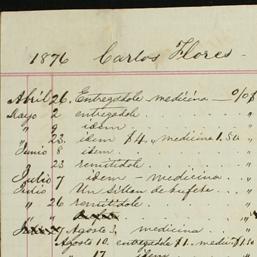 1876 Carlos Flores
Abril 26. Entregadole medicina — 0/0 $
Mayo 2 entregadole . . . "
" 9 idem . . . "
" 23. idem $4. „ medicina 1.50 "
Junio 8 idem . . . "
" 23 remitidole . . . "
Julio 7 idem medicina . . "
Julio " Un sillon de bufete . . "
" 26 remitidole . . . "
" Agosto 3, medicina . . "
Agosto 10. entregadole $1. medi $1.50
" 17 idem